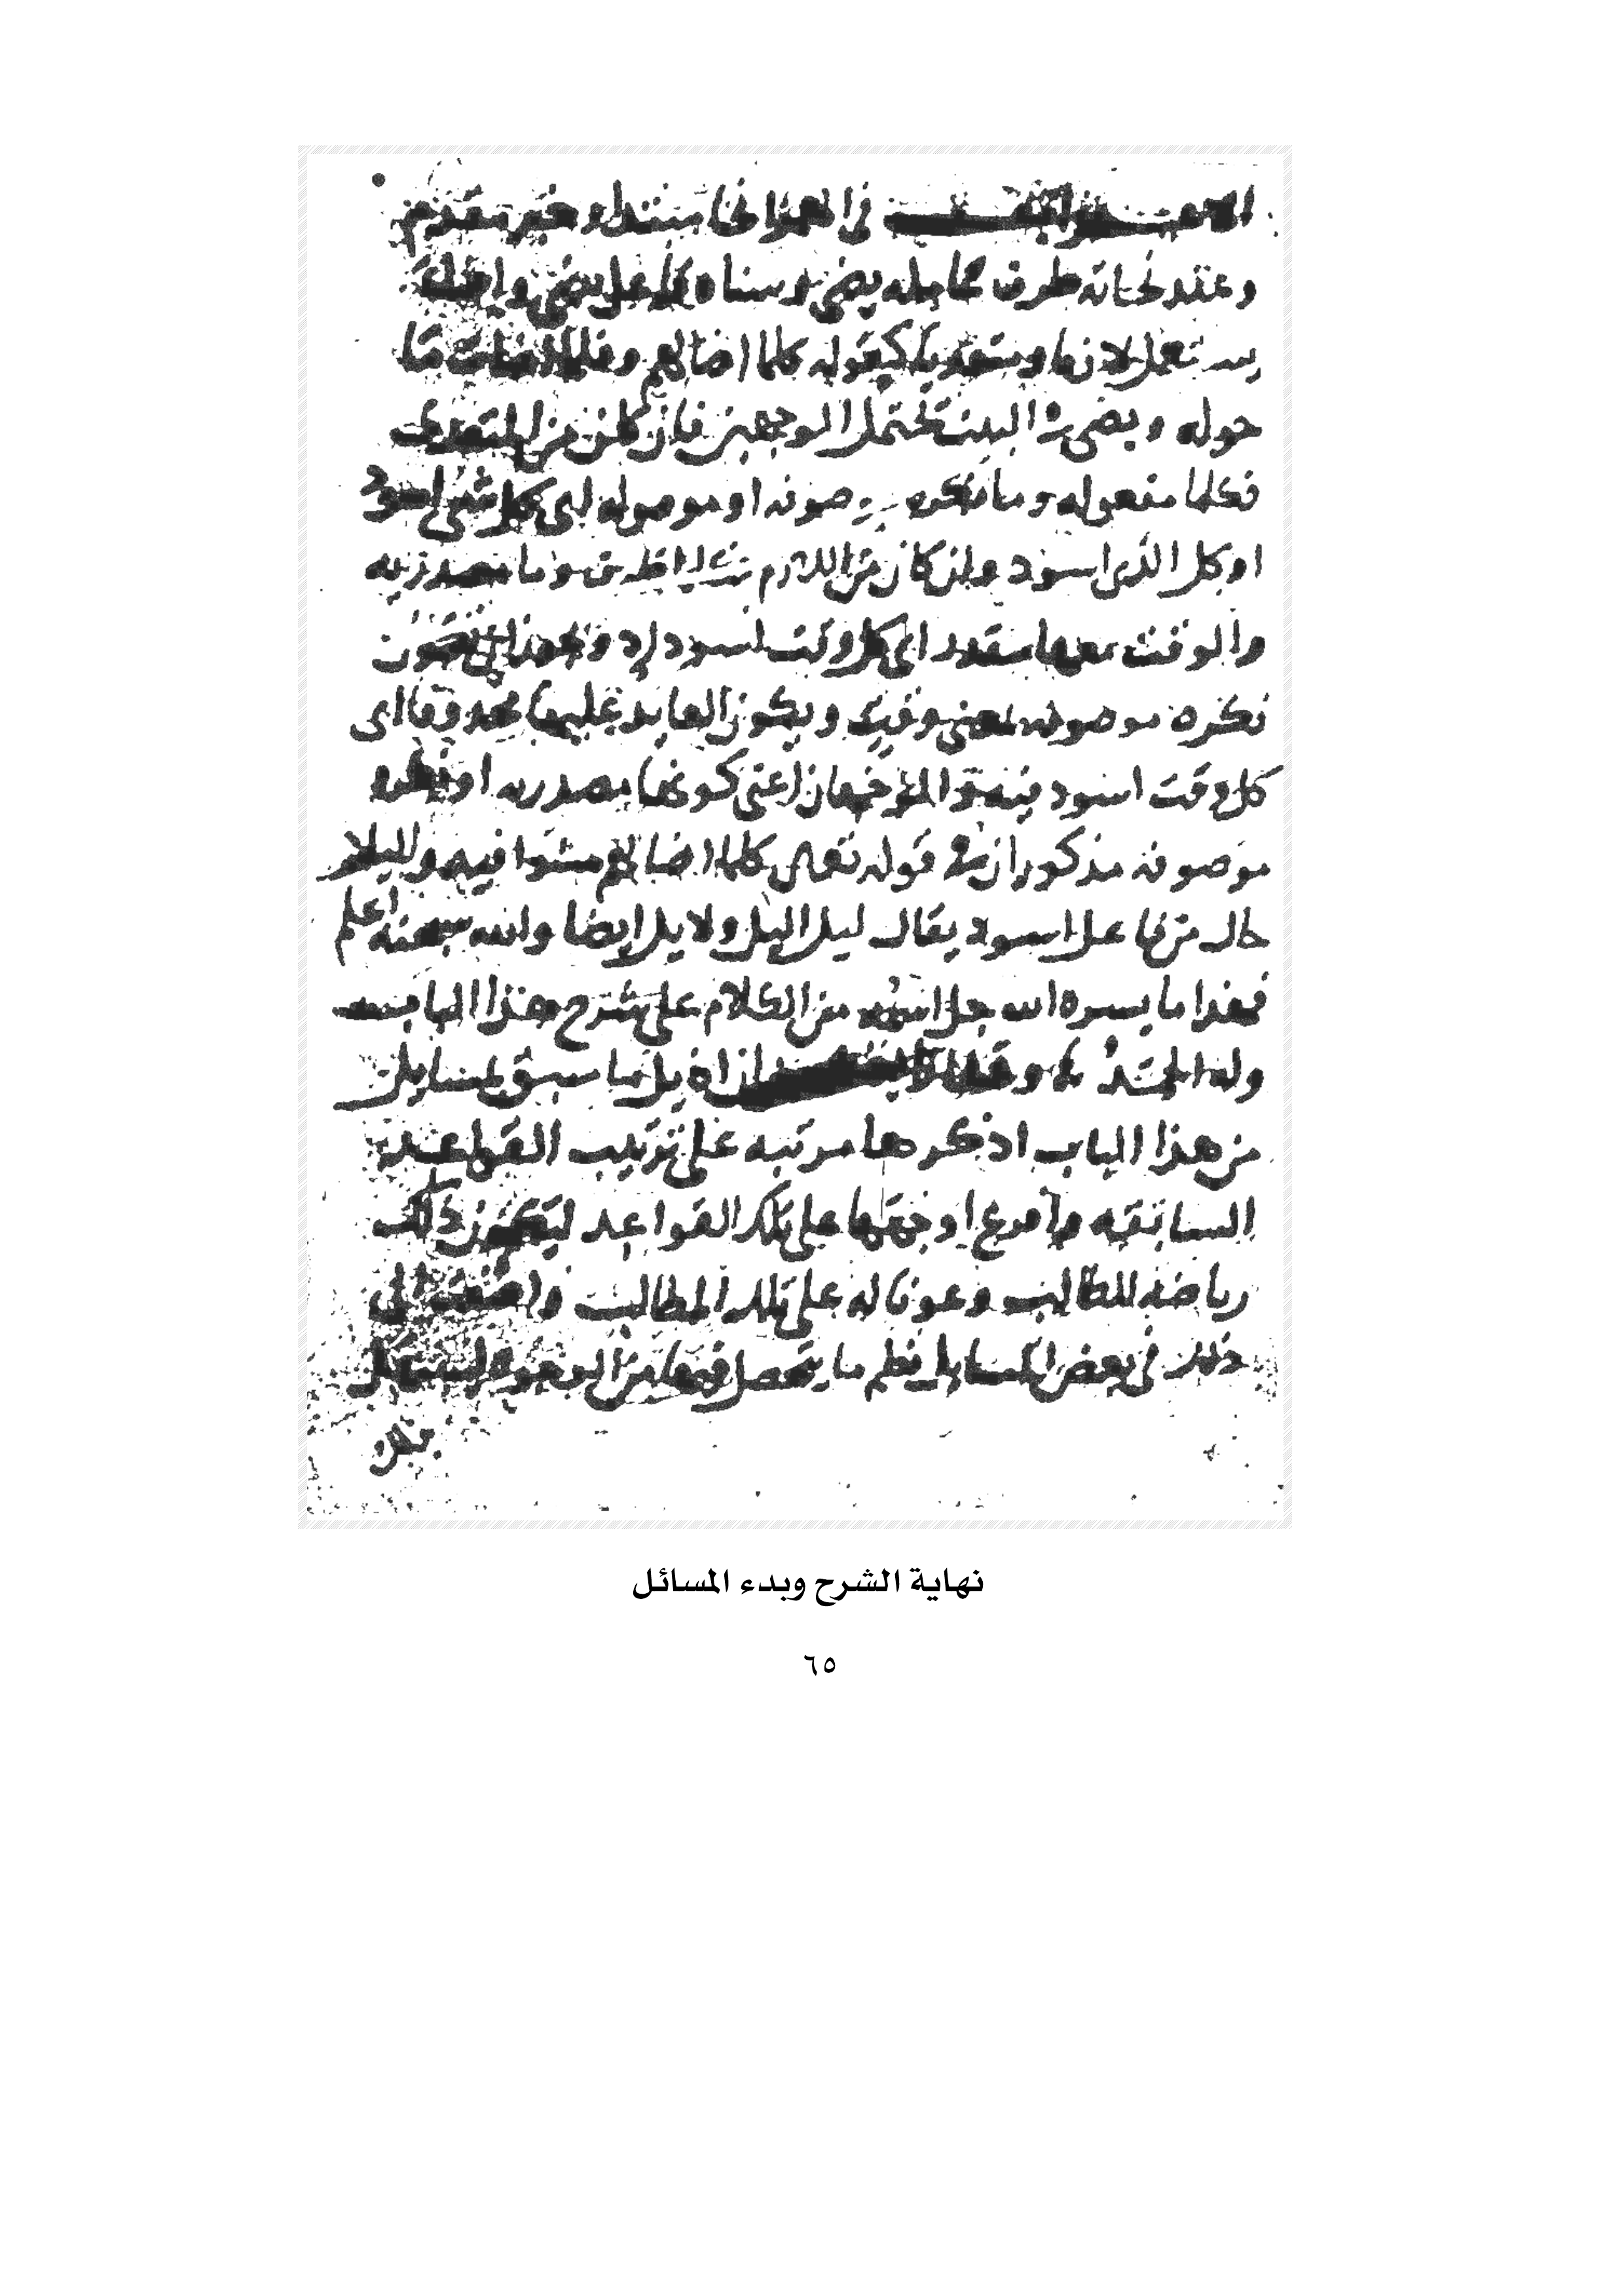 في الهوا مبتدا وخبر مقدم
وعند لحاته ظرف مما يليه يضي وسناه فاعل يضي واضات
يستعمل لازما ومتعديا كقوله كلما اضا لهم وفلما اضات ما
حوله ويضي في البيت تحتمل الوجهين فان كان من المتعدى
فكلما مفعوله وما نكره موصوفه او موصوله اي كل شي اسود
او كل الذى اسود وان كان من اللازم فكلما ظرف وما مصدريه
والوقت معها مقدر اي كل وقت اسود اد ويجوز ان تكون
نكره موصوفه بمعنى وقت ويكون العايد عليها محذوفا اى
كل وقت اسود فيه والوجهان اعنى كونها مصدريه او نكره
موصوفه مذكوران في قوله تعالى كلما اضا لهم مشوا فيه والليلا
حال من فاعل اسود يقال ليل اليل ولايل ايضا والله سبحنه اعلم
فهذا ما يسره الله جل اسمه من الكلام على شرح هذا الباب
وله الحمد ان اذيل ما سبق بمسايل
من هذا الباب اذكرها مرتبه على ترتيب القواعد
السابقه وافرع اوجهها على تلك القواعد ليكون ذلك
رياضه للطالب وعونا له على تلك المطالب واضفت الى
ذلك في بعض المسايل نظم ما يتحصل فيها من الوجوه
نهاية الشرح وبدء المسائل
٦٥